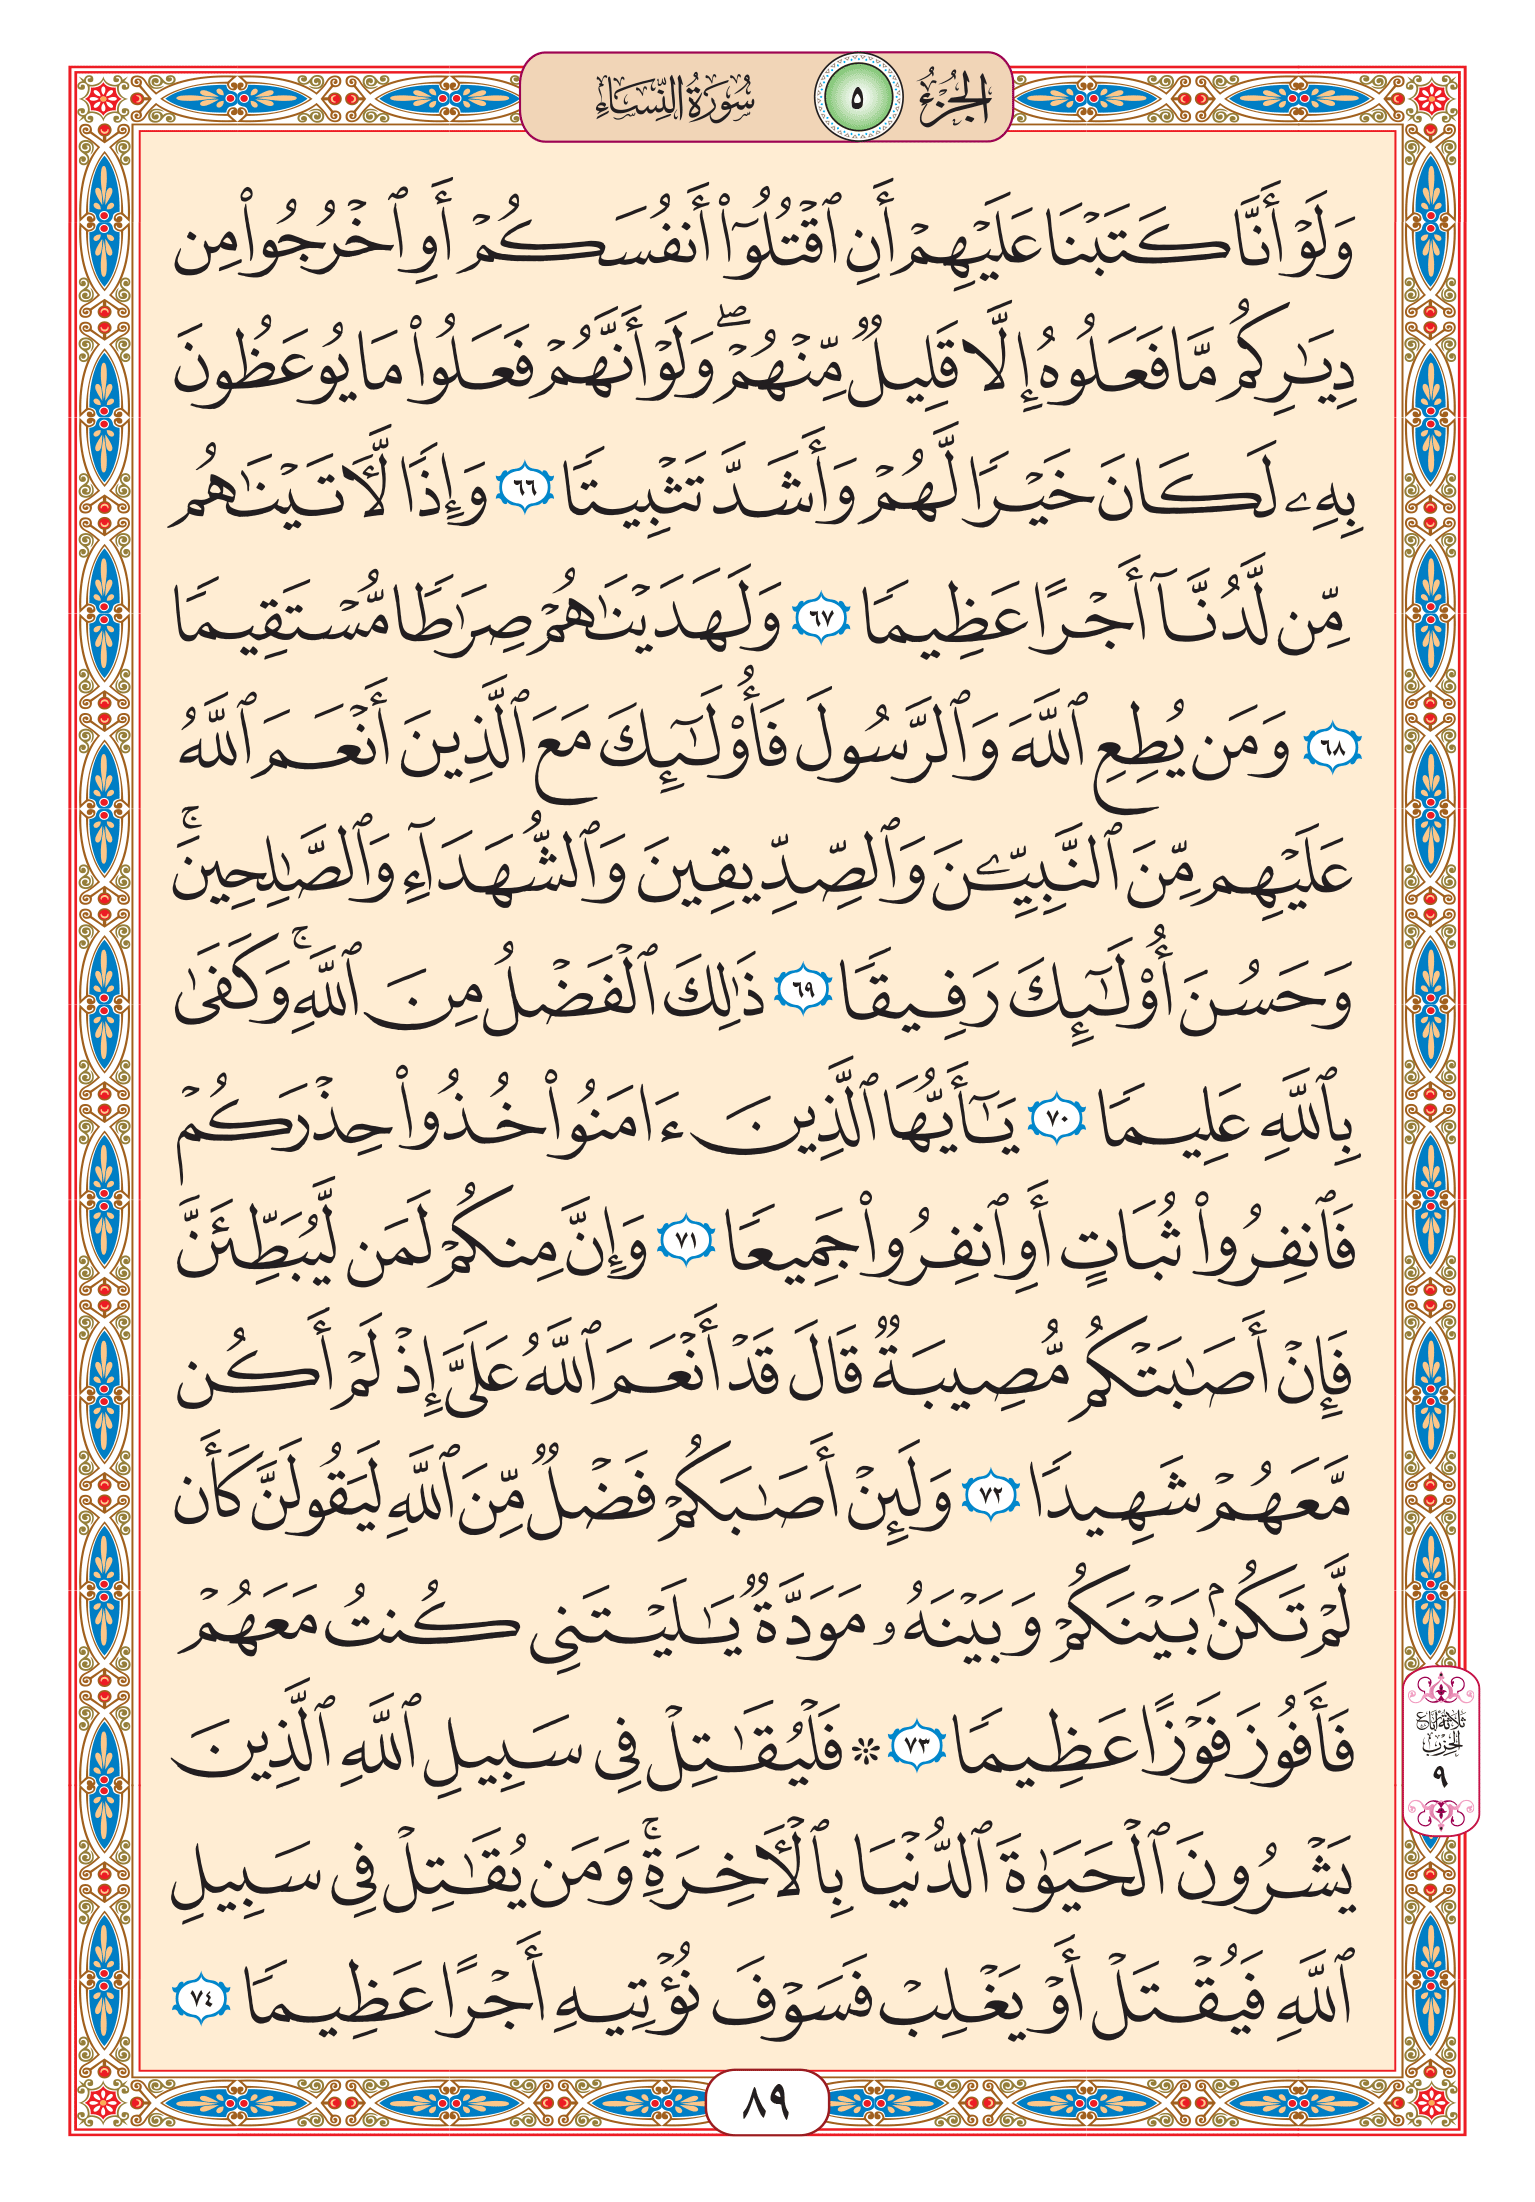 الجزء ٥ سورة النساء
وَلَوْ أَنَّا كَتَبْنَا عَلَيْهِمْ أَنِ ٱقْتُلُوٓا۟ أَنفُسَكُمْ أَوِ ٱخْرُجُوا۟ مِن
دِيَـٰرِكُم مَّا فَعَلُوهُ إِلَّا قَلِيلٌ مِّنْهُمْ ۖ وَلَوْ أَنَّهُمْ فَعَلُوا۟ مَا يُوعَظُونَ
بِهِۦ لَكَانَ خَيْرًا لَّهُمْ وَأَشَدَّ تَثْبِيتًا ٦٦ وَإِذًا لَّـَٔاتَيْنَـٰهُم
مِّن لَّدُنَّآ أَجْرًا عَظِيمًا ٦٧ وَلَهَدَيْنَـٰهُمْ صِرَٰطًا مُّسْتَقِيمًا
٦٨ وَمَن يُطِعِ ٱللَّهَ وَٱلرَّسُولَ فَأُو۟لَـٰٓئِكَ مَعَ ٱلَّذِينَ أَنْعَمَ ٱللَّهُ
عَلَيْهِم مِّنَ ٱلنَّبِيِّـۧنَ وَٱلصِّدِّيقِينَ وَٱلشُّهَدَآءِ وَٱلصَّـٰلِحِينَ ۚ
وَحَسُنَ أُو۟لَـٰٓئِكَ رَفِيقًا ٦٩ ذَٰلِكَ ٱلْفَضْلُ مِنَ ٱللَّهِ ۚ وَكَفَىٰ
بِٱللَّهِ عَلِيمًا ٧٠ يَـٰٓأَيُّهَا ٱلَّذِينَ ءَامَنُوا۟ خُذُوا۟ حِذْرَكُمْ
فَٱنفِرُوا۟ ثُبَاتٍ أَوِ ٱنفِرُوا۟ جَمِيعًا ٧١ وَإِنَّ مِنكُمْ لَمَن لَّيُبَطِّئَنَّ
فَإِنْ أَصَـٰبَتْكُم مُّصِيبَةٌ قَالَ قَدْ أَنْعَمَ ٱللَّهُ عَلَىَّ إِذْ لَمْ أَكُن
مَّعَهُمْ شَهِيدًا ٧٢ وَلَئِنْ أَصَـٰبَكُمْ فَضْلٌ مِّنَ ٱللَّهِ لَيَقُولَنَّ كَأَن
لَّمْ تَكُنۢ بَيْنَكُمْ وَبَيْنَهُۥ مَوَدَّةٌ يَـٰلَيْتَنِى كُنتُ مَعَهُمْ
فَأَفُوزَ فَوْزًا عَظِيمًا ٧٣ ۞ فَلْيُقَـٰتِلْ فِى سَبِيلِ ٱللَّهِ ٱلَّذِينَ
يَشْرُونَ ٱلْحَيَوٰةَ ٱلدُّنْيَا بِٱلْـَٔاخِرَةِ ۚ وَمَن يُقَـٰتِلْ فِى سَبِيلِ
ٱللَّهِ فَيُقْتَلْ أَوْ يَغْلِبْ فَسَوْفَ نُؤْتِيهِ أَجْرًا عَظِيمًا ٧٤
ثلاثة أرباع
الحزب
٩
٨٩